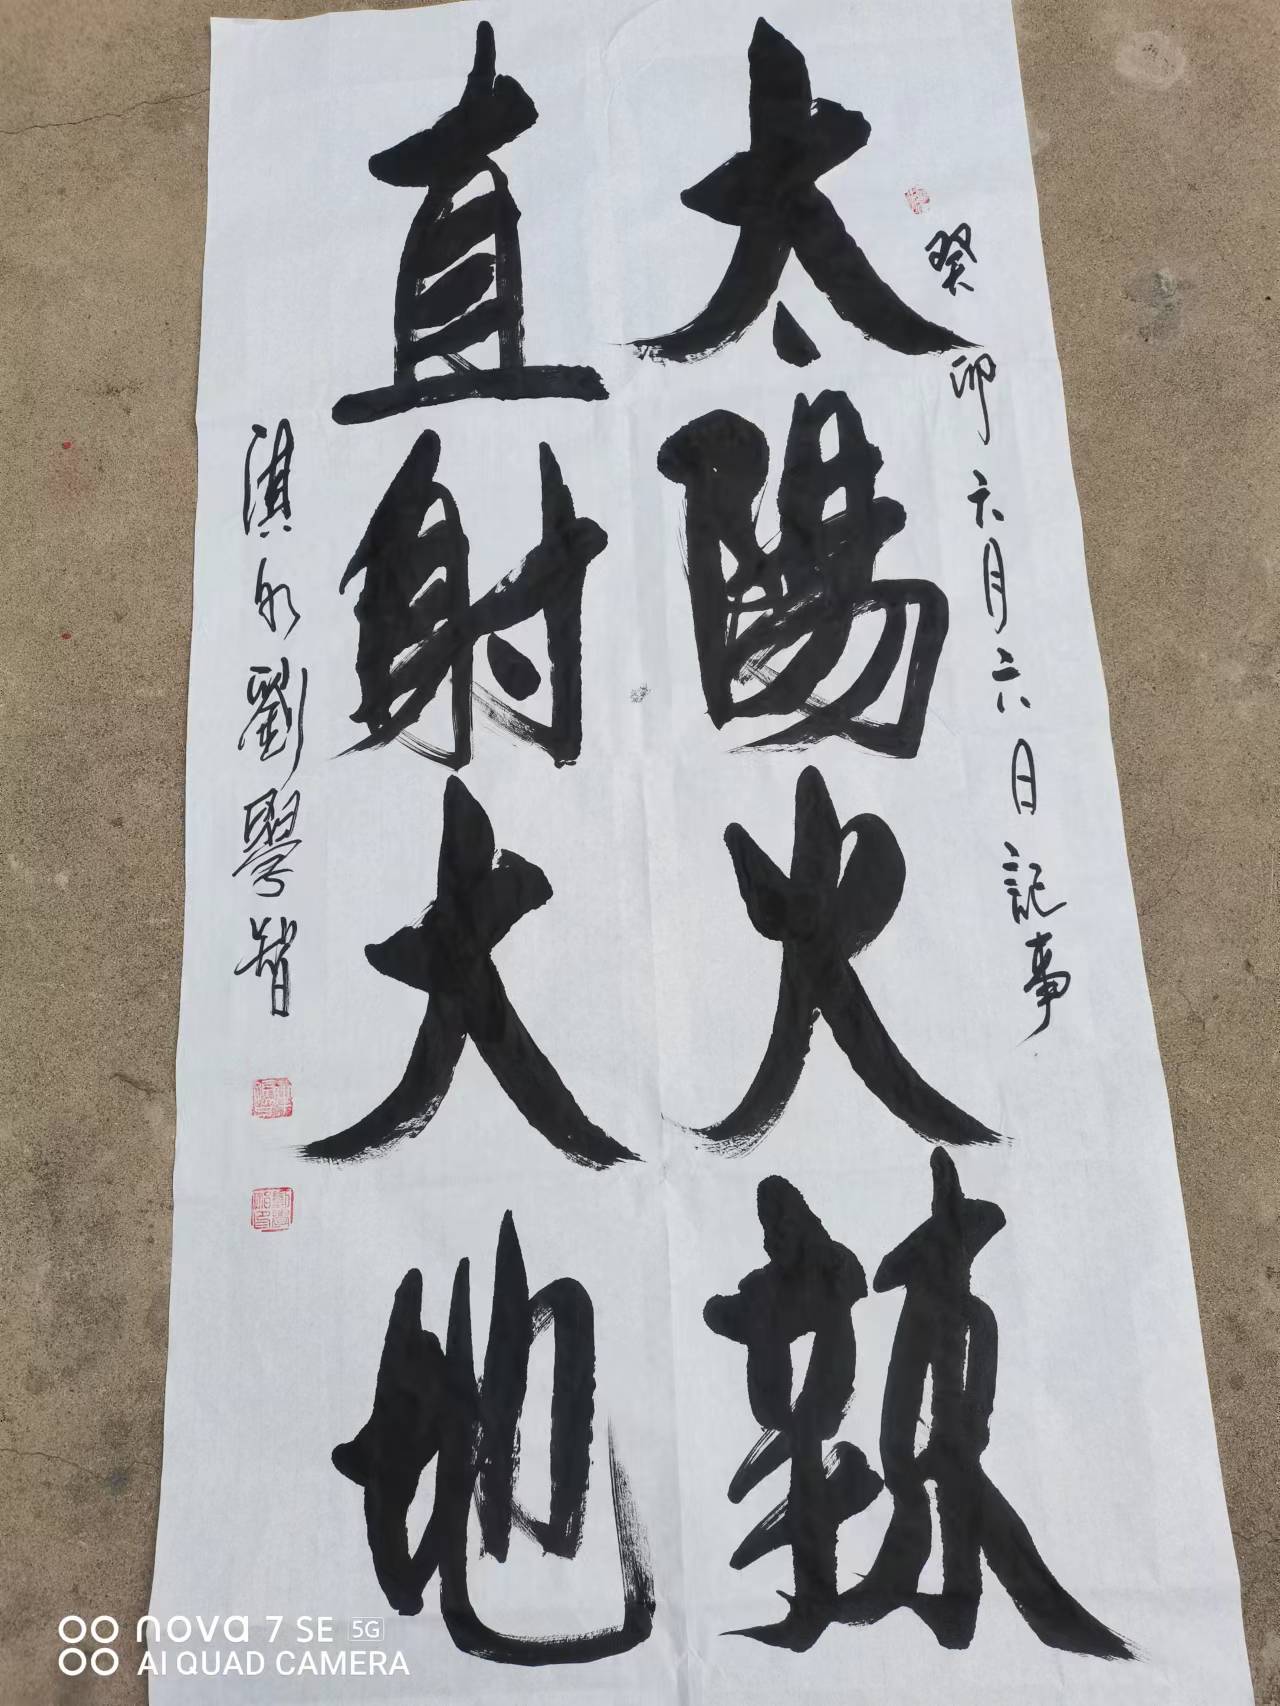 癸卯六月六日記事
太陽火辣
直射大地
劉學智
nova 7 SE 5G
AI QUAD CAMERA